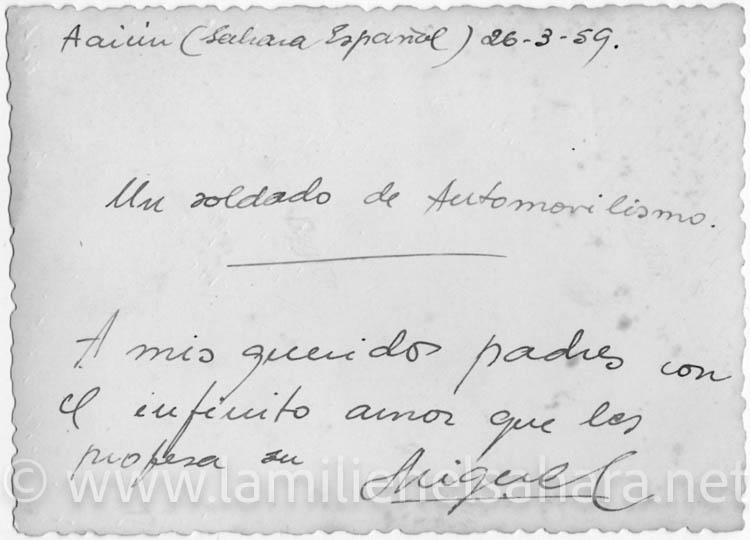 Aaiún (Sahara Español) 26-3-59.
Un soldado de Automovilismo.
A mis queridos padres con
el infinito amor que les
profesa su Miguel
© www.lamilienelsahara.net